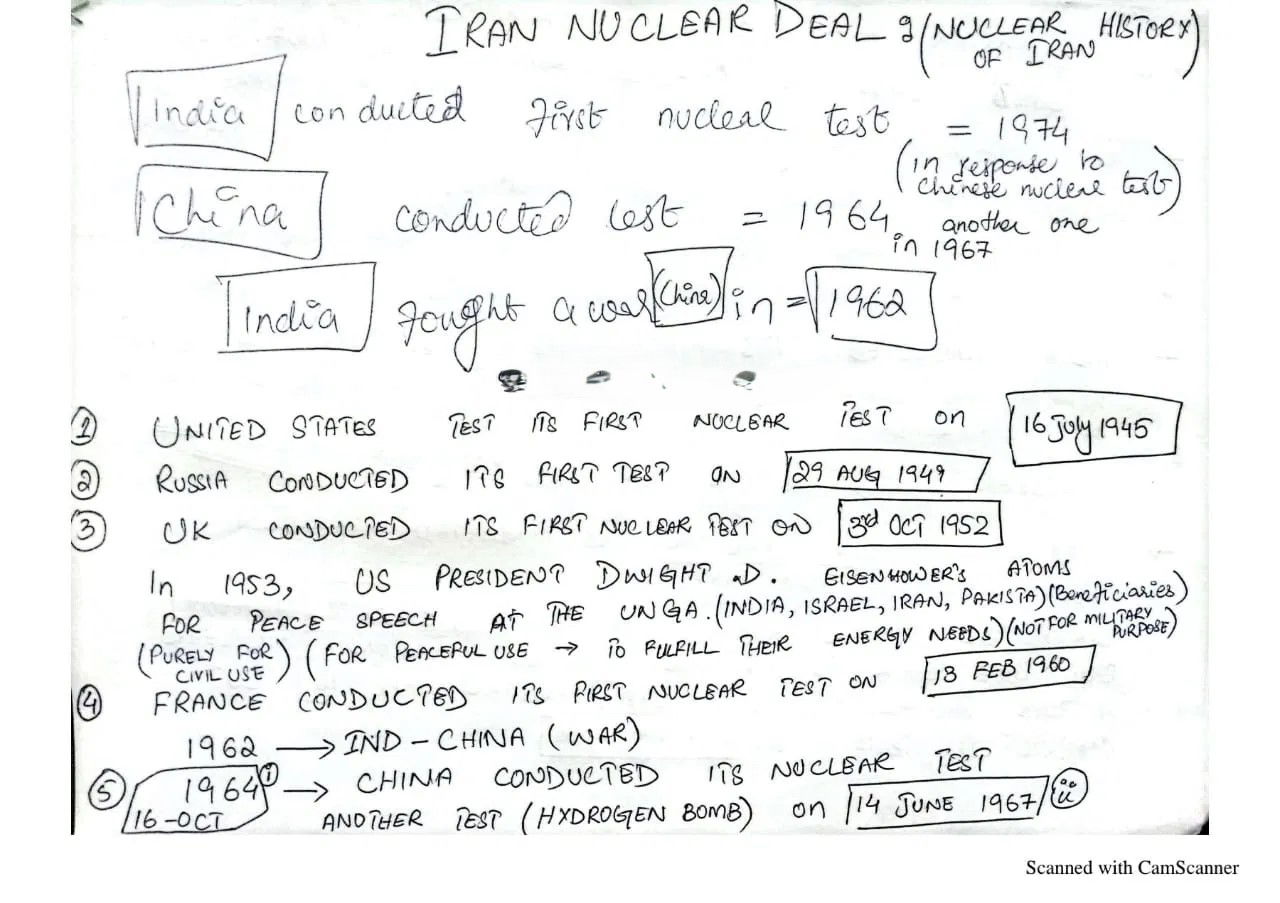 IRAN NUCLEAR DEAL & (NUCLEAR HISTORY OF IRAN)
India conducted first nuclear test = 1974
(in response to chinese nuclear test)
China conducted test = 1964. another one in 1967
India fought a war (China) in = 1962
1 UNITED STATES TEST ITS FIRST NUCLEAR TEST on 16 July 1945
2 RUSSIA CONDUCTED ITS FIRST TEST ON 29 AUG 1949
3 UK CONDUCTED ITS FIRST NUCLEAR TEST ON 3rd OCT 1952
In 1953, US PRESIDENT DWIGHT D. EISENHOWER'S ATOMS
FOR PEACE SPEECH AT THE UNGA. (INDIA, ISRAEL, IRAN, PAKISTA) (Beneficiaries)
(PURELY FOR CIVIL USE) (FOR PEACEFUL USE → TO FULFILL THEIR ENERGY NEEDS) (NOT FOR MILITARY PURPOSE)
4 FRANCE CONDUCTED ITS FIRST NUCLEAR TEST ON 13 FEB 1960
1962 → IND - CHINA (WAR)
5 1964 (i) → CHINA CONDUCTED ITS NUCLEAR TEST
16-OCT ANOTHER TEST (HYDROGEN BOMB) on 14 JUNE 1967 (ii)
Scanned with CamScanner